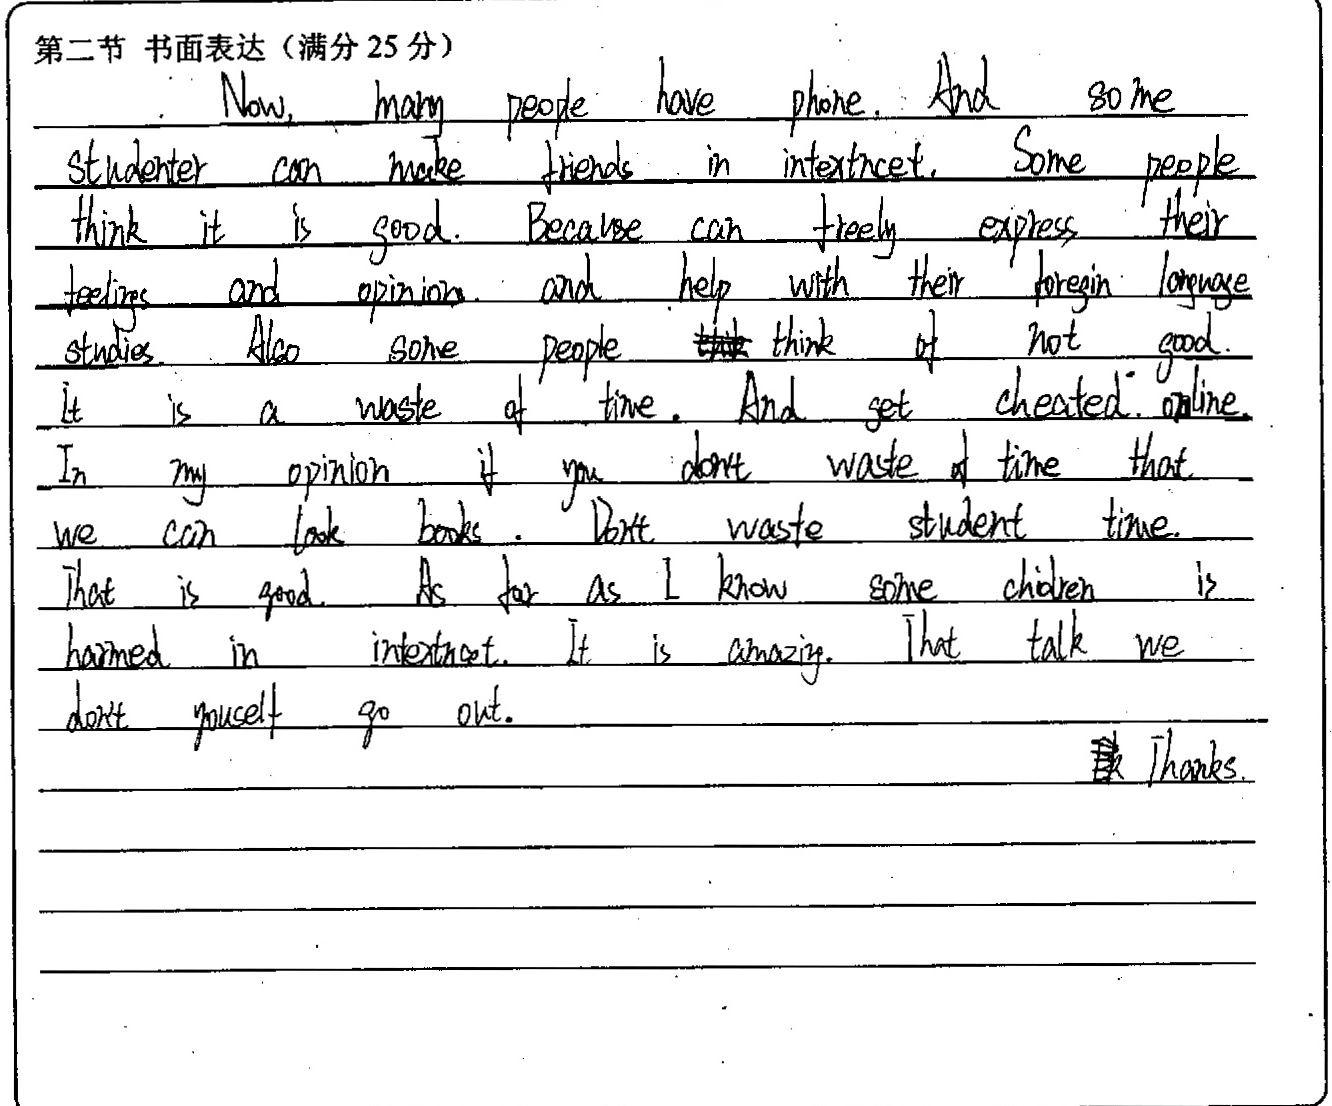 第二节 书面表达（满分 25 分）
Now, many people have phone. And some
studenter can make friends in intextncet. Some people
think it is good. Because can freely express their
feelings and opinion. and help with their foregin language
studies. Also some people think of not good.
it is a waste of time. And get cheated. online.
In my opinion if you don't waste of time that
we can look books. Don't waste student time.
That is good. As far as I know some chidren is
harmed in intextncet. It is amazing. That talk we
don't youself go out.
Thanks.